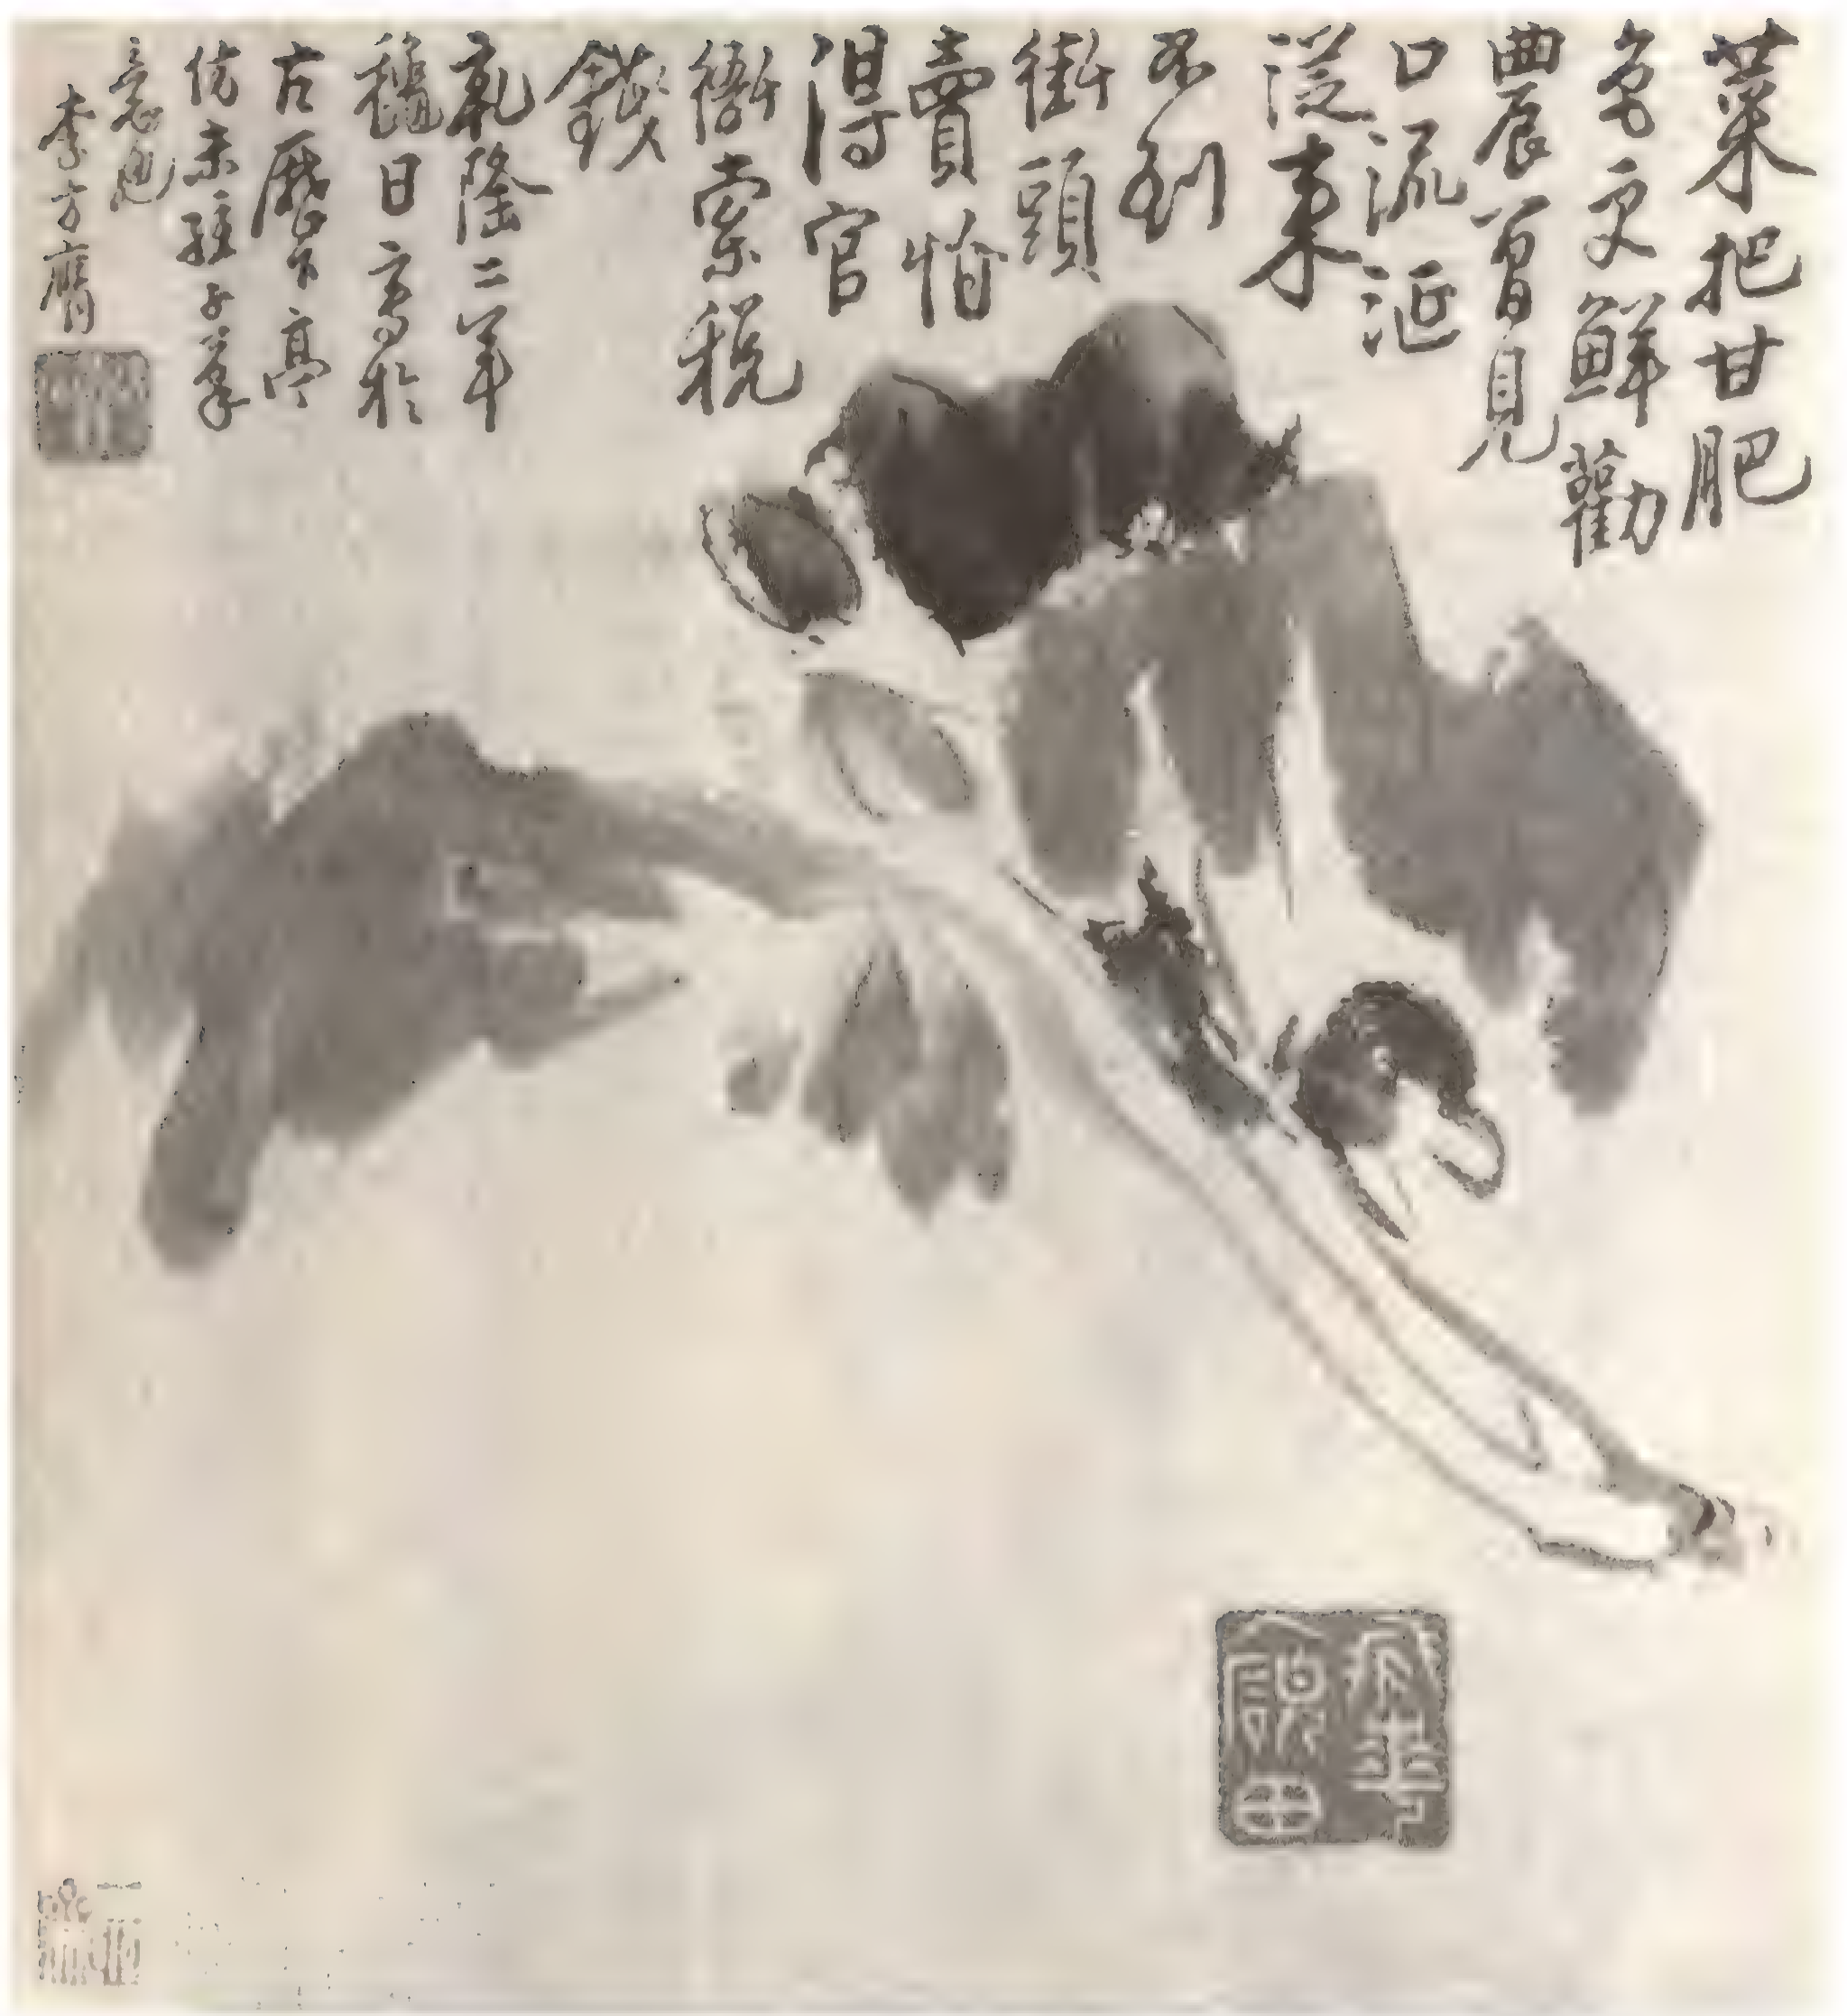 菜把甘肥
色更鮮勸
農曾見
口流涎
從来
不到
街頭
賣怕
淂官
衙索税
錢
乾隆二年
穐日寫於
古歷下亭
仿子筆
意也
李方膺